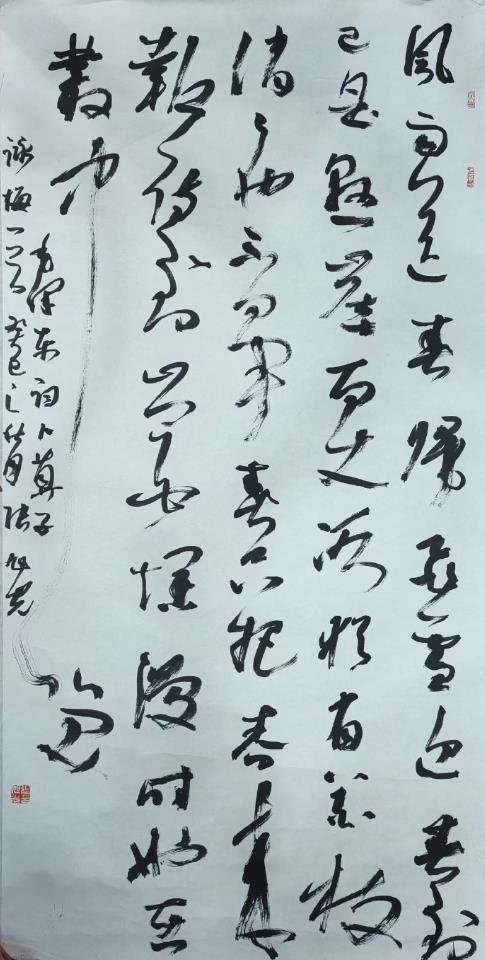 風雨送春歸飛雪迎春到
已是懸崖百丈冰猶有花枝
俏々也不争春只把春來
報待到山花爛漫時她在
叢中笑
毛澤东詞卜算子
詠梅一首癸巳之秋月張旭光